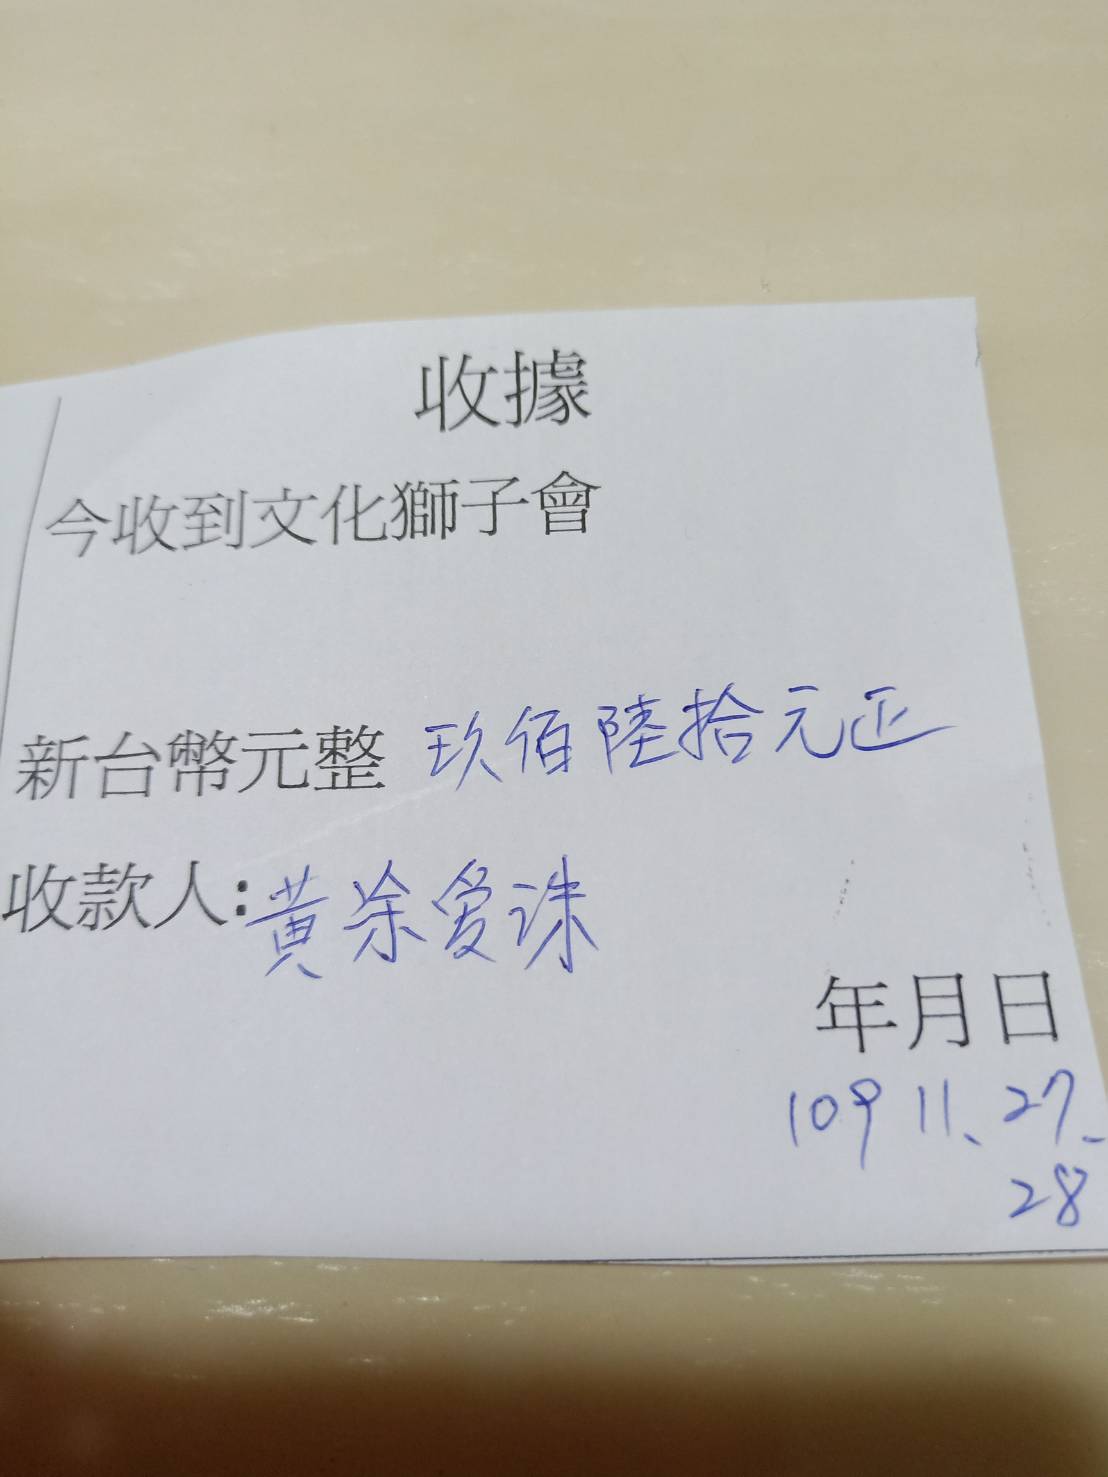 收據
今收到文化獅子會
新台幣元整 玖佰陸拾元正
收款人:黃涂愛珠
年月日
109 11、27、
28